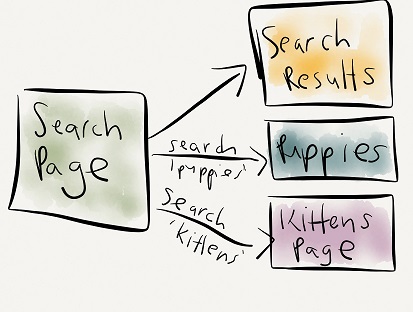 Search
Page
Search
Results
search
'puppies'
Puppies
Search
'kittens'
Kittens
Page